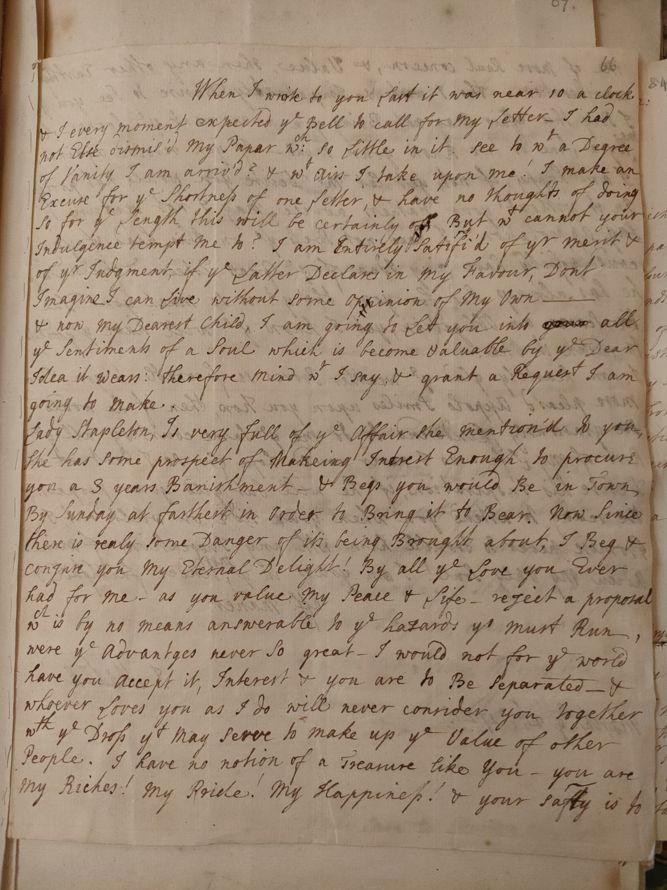 66
When I wrote to you last it was near 10 a clock
& I every moment expected ye Bell to call for my Letter – I had
not Else dismis'd My Papar wth: so little in it see to wt a Degree
of Vanity I am arriv'd? & wt airs I take upon me! I make an
Excuse for ye Shortness of one Letter, & have no thoughts of doing
so for ye Length this will be certainly off But wt cannot your
Indulgence tempt me to? I am Entirely Satisfi'd of yr merit &
of yr Judgment, if ye Latter Declare in My Favour, Dont
Imagine I can Live without some Opinion of My Own —
& now My Dearest Child, I am going to Let you into all
ye Sentiments of a Soul which is become Valuable by ye Dear
Idea it wears: therefore mind wt I say, & grant a Request I am
going to make.
Lady Stapleton, Is very full of ye Affair she mention'd to you,
she has some prospect of Makeing Interest Enough to procure
you a 3 years Banishment – & Begs you would Be in Town
By Sunday at farthest in Order to Bring it to Bear. Now Since
there is realy some Danger of its being Brought about, I Beg &
conjure you My Eternal Delight! By all ye Love you Ever
had for me – as you value My Peace & Life – reject a proposal
wch is by no means answerable to ye hazards yo must Run,
were ye Advantges never so great – I would not for ye world
have you accept it, Interest & you are to Be separated – &
whoever Loves you as I do will never consider you together
wth ye Dross yt may serve to make up ye Value of other
People. I have no notion of a Treasure like You – you are
My Riches! My Pride! My Happiness! & your safty is to